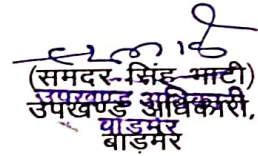 (समदर सिंह भाटी)
उपखण्ड अधिकारी
उपखण्ड अधिकारी,
बाडमेर
बाड़मेर